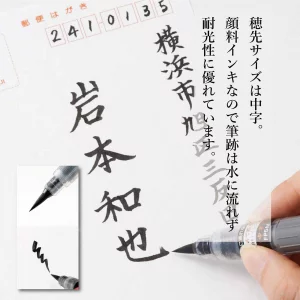 穂先サイズは中字。
顔料インキなので筆跡は水に流れず
耐光性に優れています。
郵便はがき
2410135
横浜市旭区三反田
岩本和也